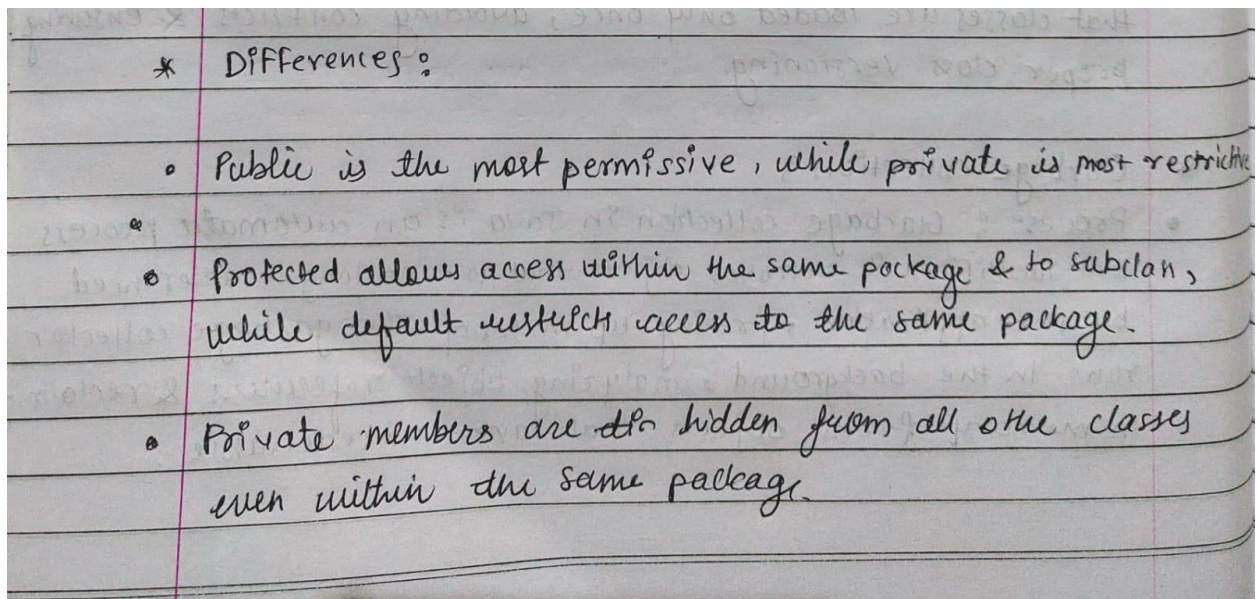 * Differences :
• Public is the most permissive, while private is most restrictive
• Protected allows access within the same package & to subclan,
while default restricts access to the same package.
• Private members are hidden from all othe classes
even within the same package.